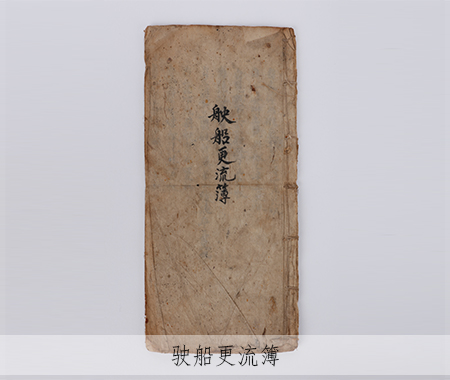 䑨船更流簿
驶船更流簿